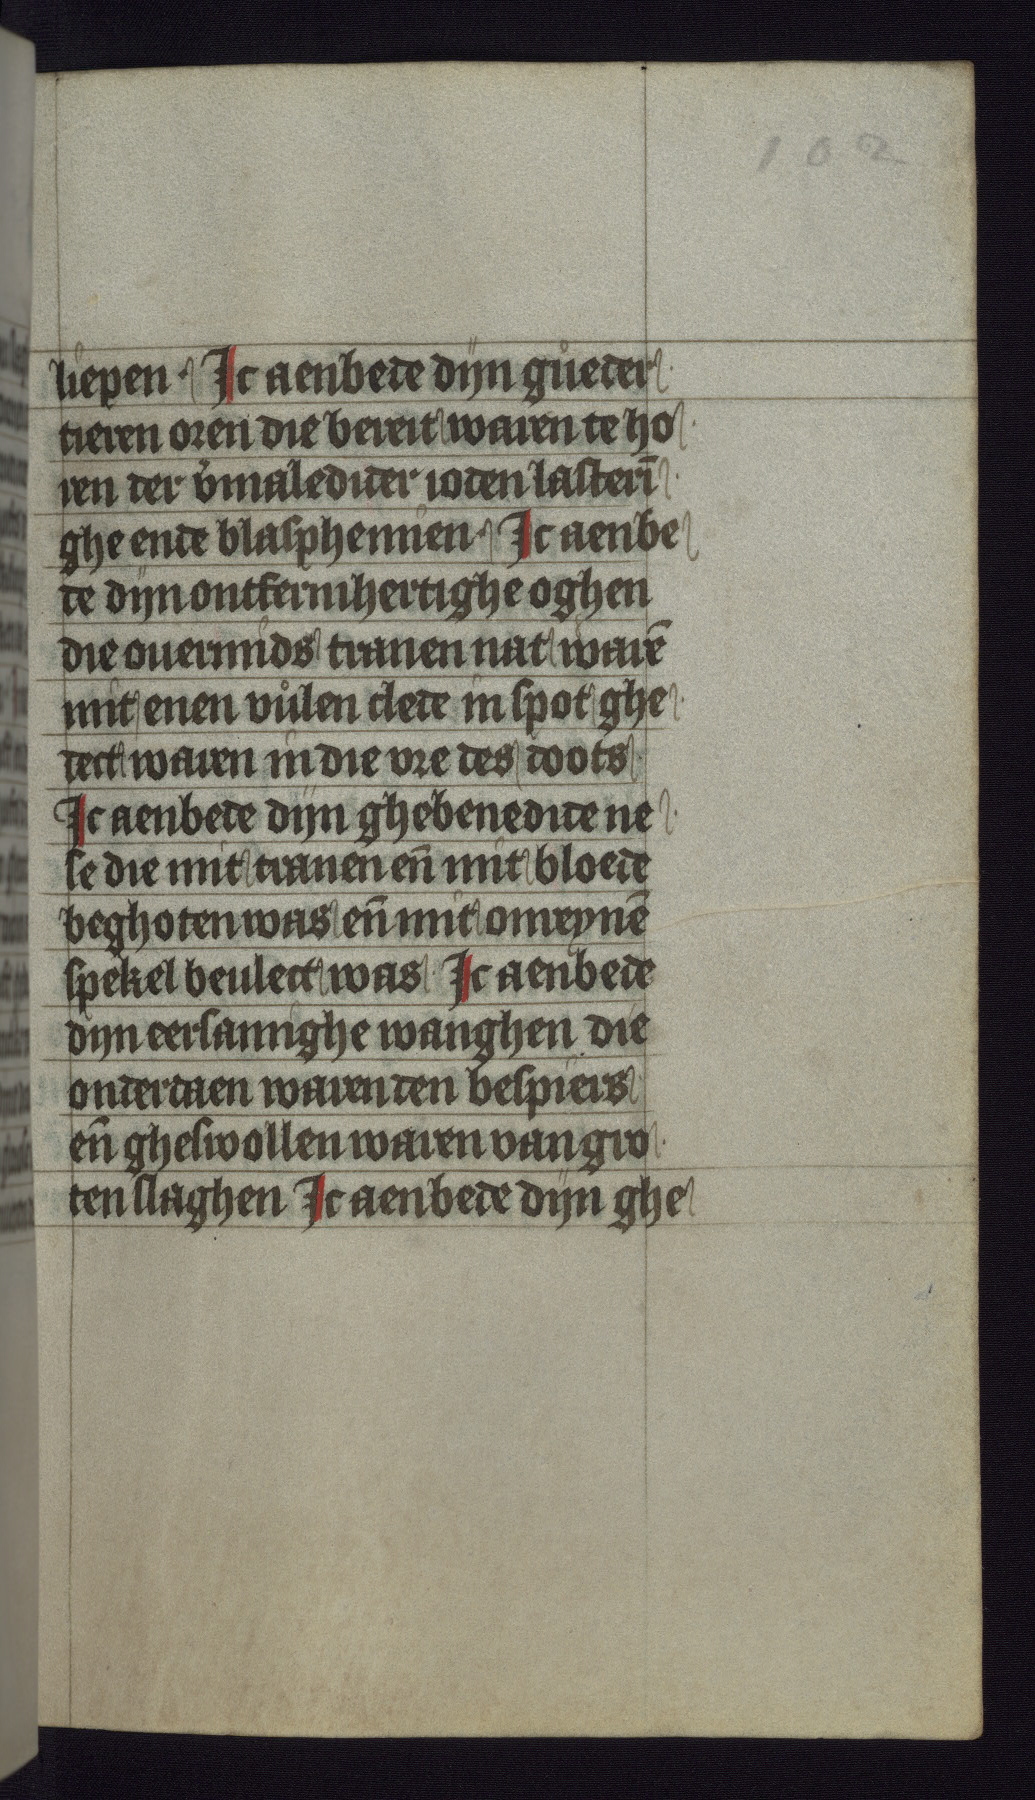 102
liepen. Ic aenbede dijn gůeder
tieren oren die bereit waren te ho
ren der v̓maledider ioden lasterī
ghe ende blasphemien. Ic aenbe
de dijn ontfermhertighe oghen
die ouermids tranen nat warē
mit enen vůlen clede in spot ghe
dect waren in die vre des doots
Ic aenbede dijn ghebenedide ne
se die mit tranen en̄ mit bloede
beghoten was en̄ mit omreynē
spekel beulect was Ic aenbede
dijn eersamighe wanghen die
onderdaen waren den bespiers
en̄ gheswollen waren van gro
ten slaghen Ic aenbede dijn ghe